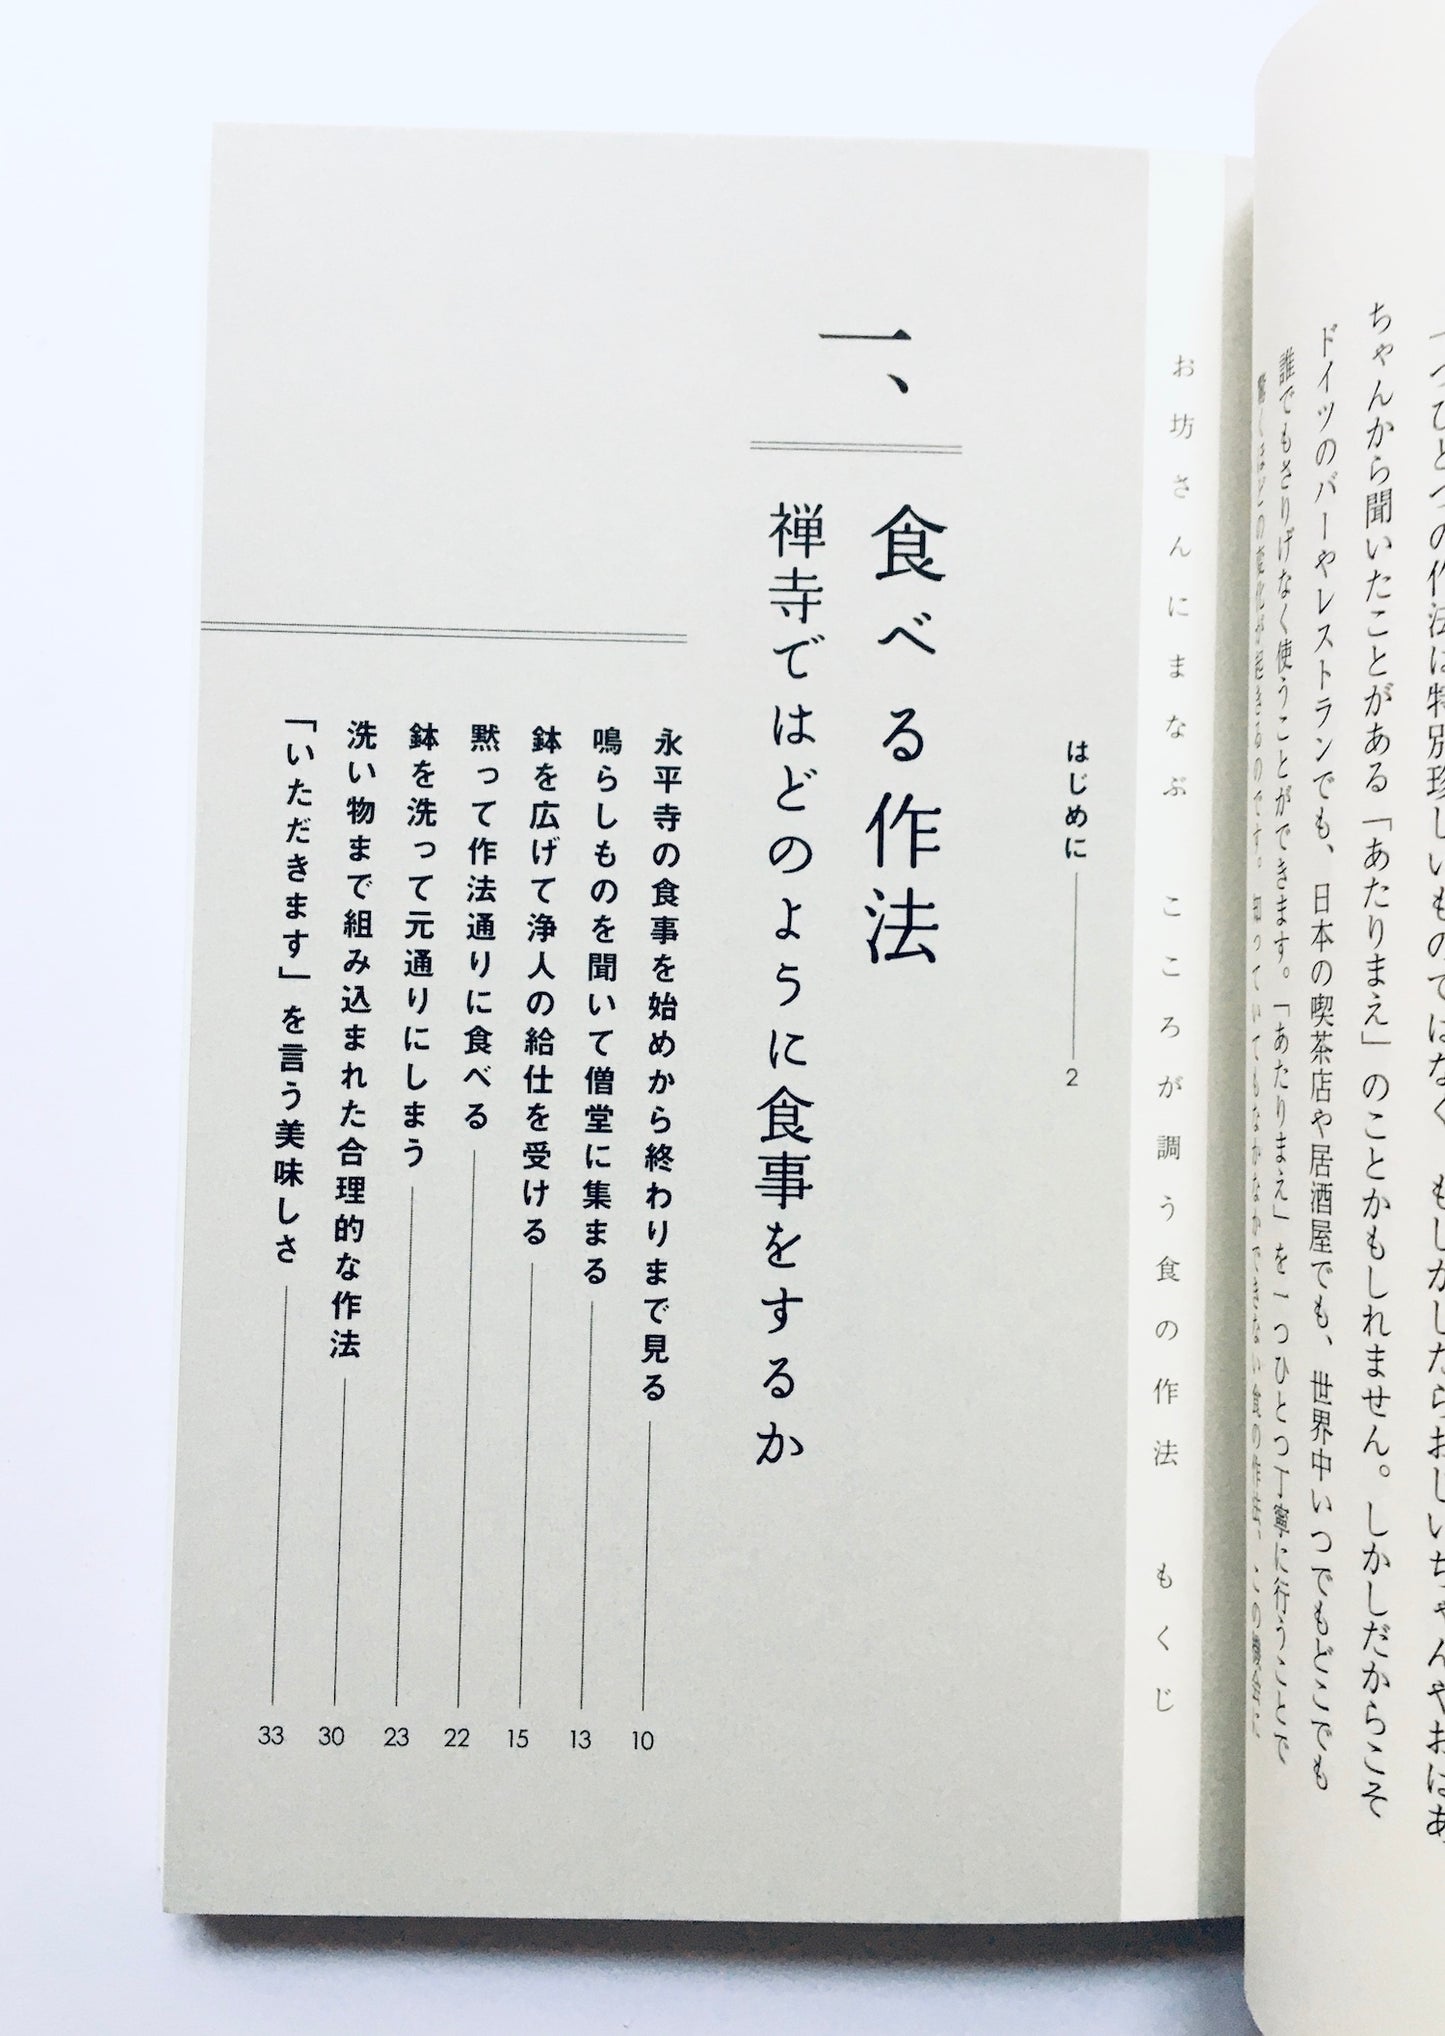 一つひとつの作法は特別珍しいものではなく、もしかしたらおじいちゃんやおばあ
ちゃんから聞いたことがある「あたりまえ」のことかもしれません。しかしだからこそ
ドイツのバーやレストランでも、日本の喫茶店や居酒屋でも、世界中いつでもどこでも
誰でもさりげなく使うことができます。「あたりまえ」を一つひとつ丁寧に行うことで
お坊さんにまなぶ こころが調う食の作法 もくじ
はじめに 2
一、食べる作法
禅寺ではどのように食事をするか
永平寺の食事を始めから終わりまで見る 10
鳴らしものを聞いて僧堂に集まる 13
鉢を広げて浄人の給仕を受ける 15
黙って作法通りに食べる 22
鉢を洗って元通りにしまう 23
洗い物まで組み込まれた合理的な作法 30
「いただきます」を言う美味しさ 33